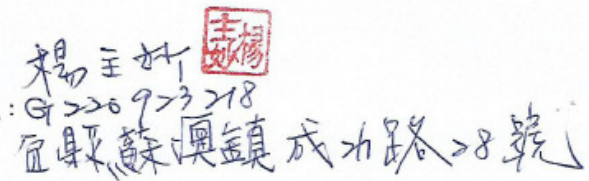 楊玉妙 楊玉妙
: G220923218
宜縣蘇澳鎮成功路28號